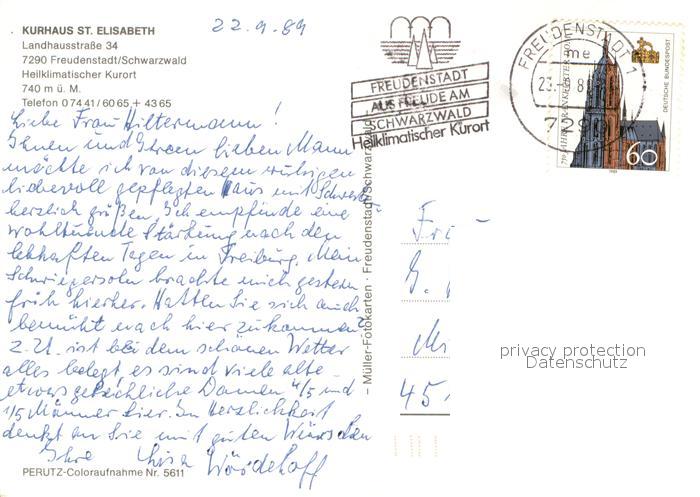 KURHAUS ST. ELISABETH
Landhausstraße 34
7290 Freudenstadt/Schwarzwald
Heilklimatischer Kurort
740 m ü. M.
Telefon 0 74 41 / 60 65 + 43 65
22.9.89
Liebe Frau Hiltermann!
Ihnen und Ihrem lieben Mann
möchte ich von diesem ruhigen
liebevoll gepflegten Haus im Schwarzw.
herzlich grüßen. Ich empfinde eine
wohltuende Stärkung nach den
lebhaften Tagen in Freiburg. Mein
Schwiegersohn brachte mich gestern
früh hierher. Hatten Sie sich auch
bemüht nach hier zu kommen?
z. Zt. ist bei dem schönen Wetter
alles belegt, es sind viele alte
etwas gebrechliche Damen 4/5 und
1/5 Männer hier. In Herzlichkeit
denkt an Sie mit guten Wünschen
Ihre
PERUTZ-Coloraufnahme Nr. 5611
– Müller-Fotokarten · Freudenstadt/Schwarzwald
FREUDENSTADT
AUS FREUDE AM
SCHWARZWALD
Heilklimatischer Kurort
FREUDENSTADT 1
me
7290
750 JAHRE FRANKFURTER DOM
DEUTSCHE BUNDESPOST
60
1989
G.
Mi
45
privacy protection
Datenschutz